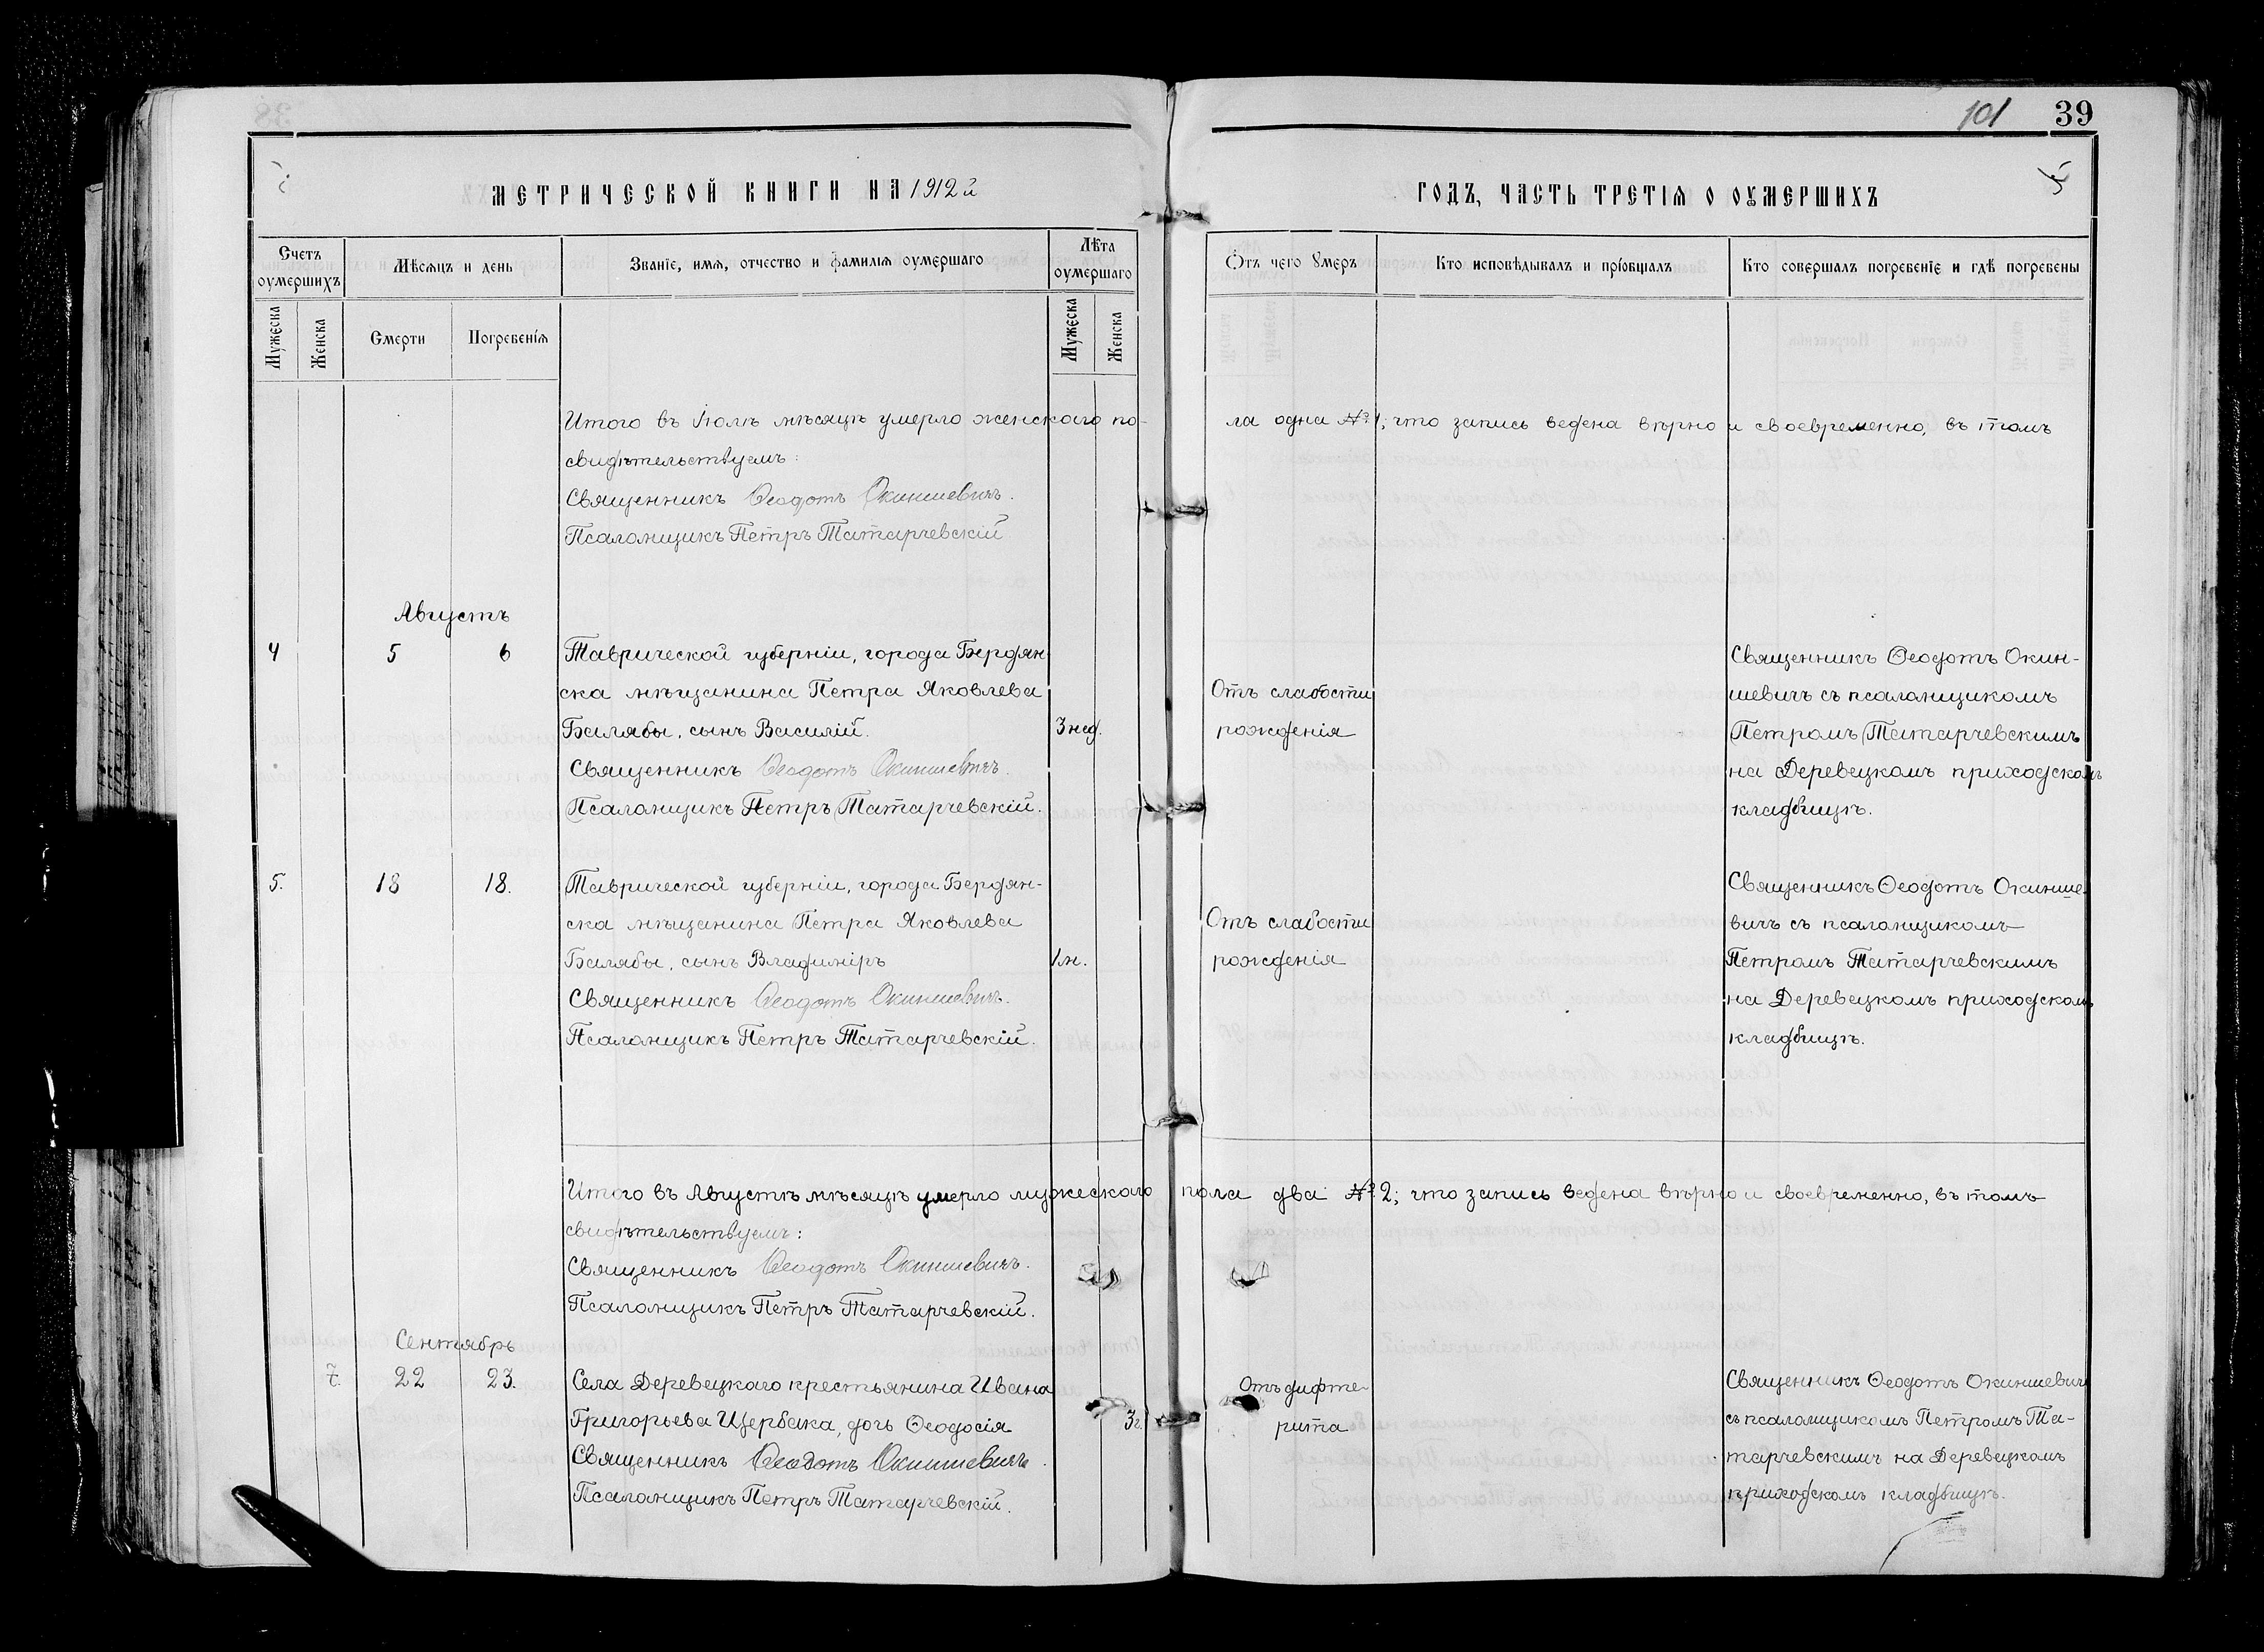 101 39
МЕТРИЧЕСКОЙ КНИГИ НА 1912й
ГОДЪ, ЧАСТЬ ТРЕТІЯ О ОУМЕРШИХЪ
Счетъ оумершихъ
Мѣсяцъ и день
Званіе, имя, отчество и фамилія оумершаго
Лѣта оумершаго
Отъ чего умеръ
Кто исповѣдывалъ и пріобщалъ
Кто совершалъ погребеніе и гдѣ погребены
Мужеска
Женска
Смерти
Погребенія
Мужеска
Женска
Итого въ Іюлѣ мѣсяцѣ умерло женскаго по-
ла одна № 1; что запись ведена вѣрно и своевременно, въ томъ
свидѣтельствуемъ:
Священникъ Ѳеодотъ Окиншевичъ.
Псаломщикъ Петръ Татарчевскій
Августъ
4 5 6
Таврической губерніи, города Бердян-
ска мѣщанина Петра Яковлева
Балябы, сынъ Василій.
3 нед.
Священникъ Ѳеодотъ Окиншевичъ.
Псаломщикъ Петръ Татарчевскій.
Отъ слабости
рожденія
Священникъ Ѳеодотъ Окин-
шевичъ съ псаломщикомъ
Петромъ Татарчевскимъ
на Деревецкомъ приходскомъ
кладбищѣ.
5. 18 18.
Таврической губерніи, города Бердян-
ска мѣщанина Петра Яковлева
Балябы, сынъ Владиміръ
1 м.
Священникъ Ѳеодотъ Окиншевичъ.
Псаломщикъ Петръ Татарчевскій.
Отъ слабости
рожденія
Священникъ Ѳеодотъ Окинше-
вичъ съ псаломщикомъ
Петромъ Татарчевскимъ
на Деревецкомъ приходскомъ
кладбищѣ.
Итого въ Августѣ мѣсяцѣ умерло мужескаго пола два № 2; что запись ведена вѣрно и своевременно, въ томъ
свидѣтельствуемъ:
Священникъ Ѳеодотъ Окиншевичъ.
Псаломщикъ Петръ Татарчевскій.
Сентябрь
7. 22 23.
Села Деревецкаго крестьянина Ивана
Григорьева Щербака, дочь Ѳеодосія
3 г.
Священникъ Ѳеодотъ Окиншевичъ.
Псаломщикъ Петръ Татарчевскій.
Отъ дифте-
рита
Священникъ Ѳеодотъ Окиншевичъ
съ псаломщикомъ Петромъ Та-
тарчевскимъ на Деревецкомъ
приходскомъ кладбищѣ.